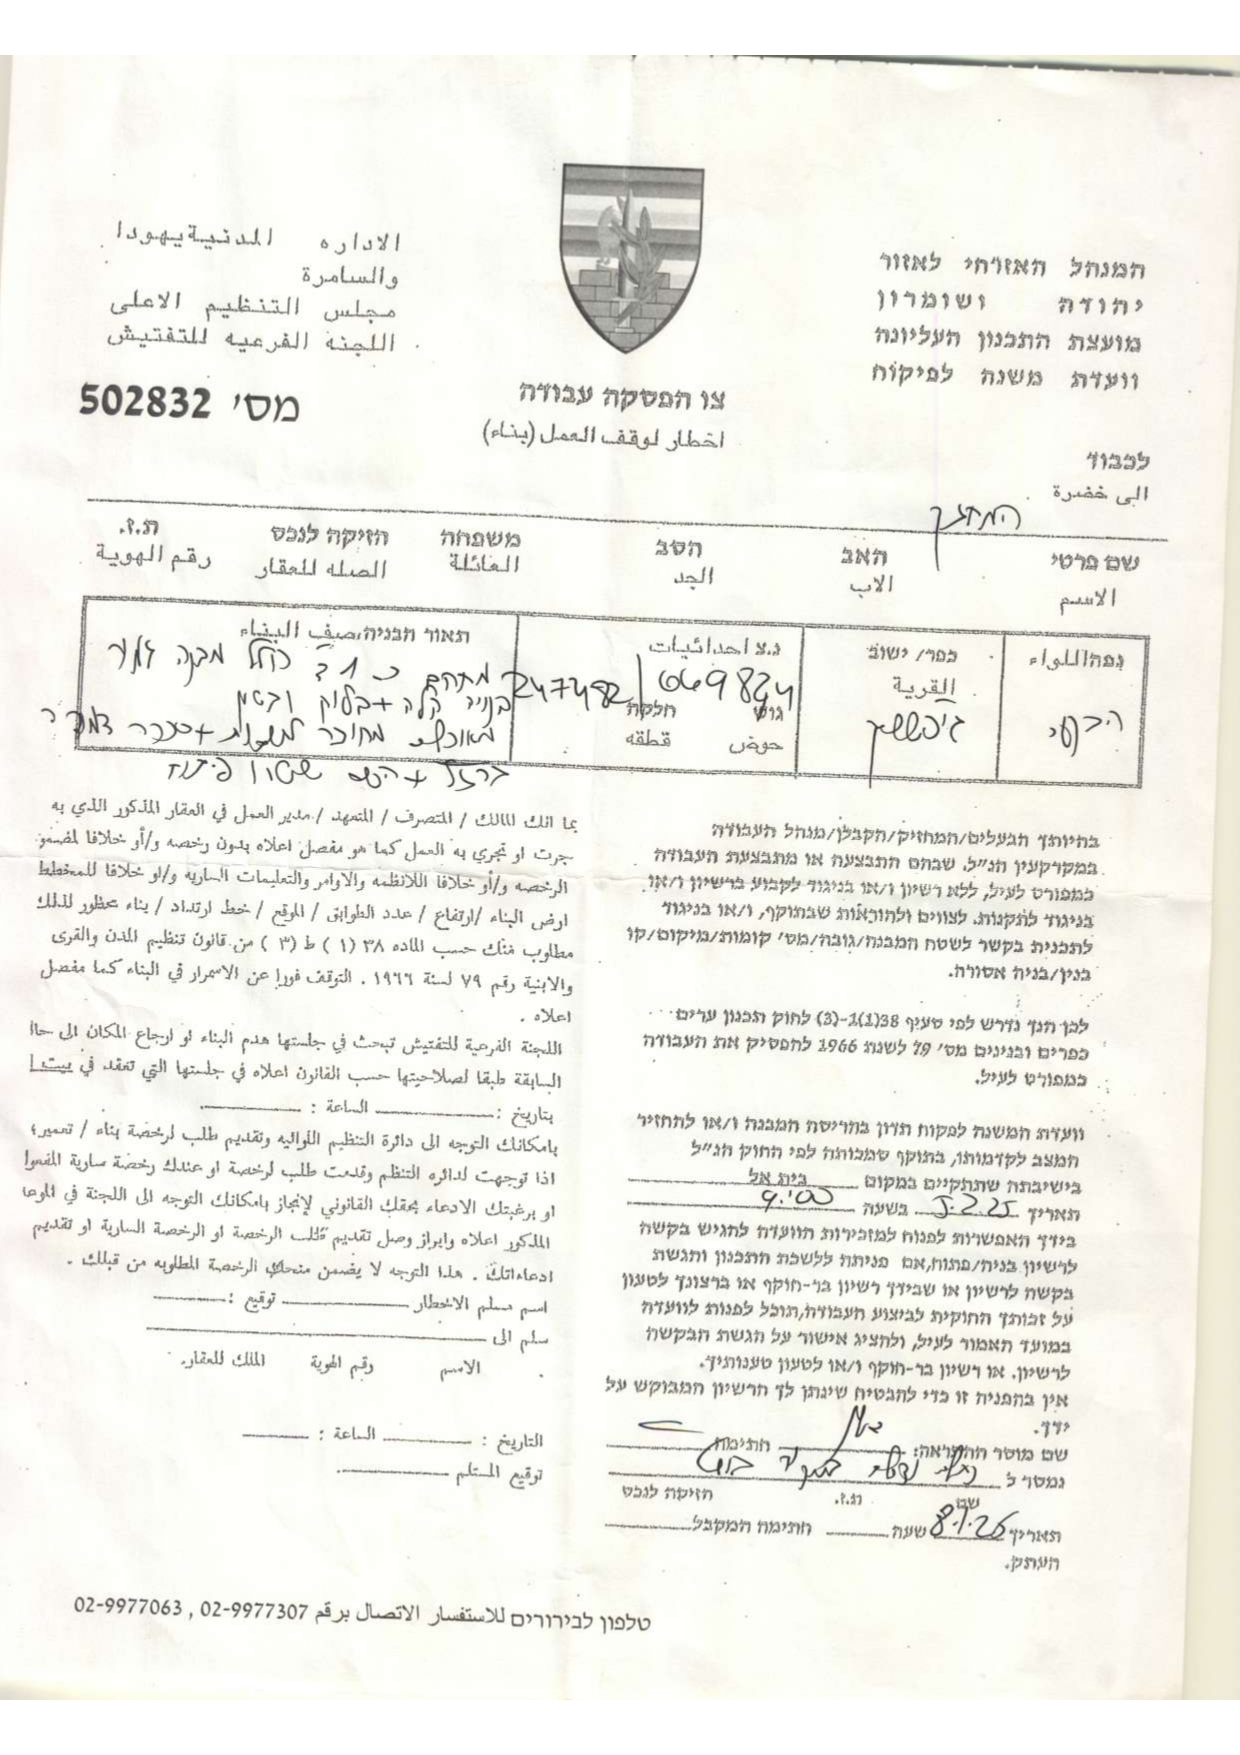 המנהל האזרחי לאזור
יהודה ושומרון
מועצת התכנון העליונה
וועדת משנה לפיקוח
الاداره المدنية يهودا
والسامرة
مجلس التنظيم الاعلى
اللجنة الفرعيه للتفتيش
מס' 502832
צו הפסקה עבודה
اخطار لوقف العمل (بناء)
לכבוד
الى حضرة
המחזיק
שם פרטי האב הסב משפחה חזיקה לנכס ת.ז.
الاسم الاب الجد العائلة الصله للعقار رقم الهوية
נפה اللواء
כפר/ ישוב
القرية
נ.צ احداثيات
247482/649824
גוש חלקה
حوض قطقه
תאור הבניה، صيف البناء
מתחם כ 1 ד כולל מבנה
בניה קלה + בלוק ובטון
למגורים
ברזל +
בהיותך הבעלים/המחזיק/הקבלן/מנהל העבודה
במקרקעין הנ"ל, שבהם התבצעה או מתבצעת העבודה
כמפורט לעיל, ללא רשיון ו/או בניגוד לקבוע ברשיון ו/או
בניגוד לתקנות, לצווים ולהוראות שבתוקף, ו/או בניגוד
לתכנית בקשר לשטח המבנה/גובה/מס' קומות/מיקום/קו
בנין/בניה אסורה.
לכן הנך נדרש לפי סעיף 38(1)-1(3) לחוק תכנון ערים
כפרים ובנינים מס' 79 לשנת 1966 להפסיק את העבודה
כמפורט לעיל.
וועדת המשנה לפקוח תדון בהריסת המבנה ו/או להחזיר
המצב לקדמותו, בתוקף שמכותה לפי החוק הנ"ל
בישיבתה שתתקיים במקום בית אל
תאריך 5.2.25 בשעה 9.00
בידך האפשרות לפנות למזכירות הוועדה להגיש בקשה
לרשיון בניה/פתוח, אם פניתה ללשכת התכנון והגשת
בקשה לרשיון או שבידך רשיון בר-תוקף או ברצונך לטעון
על זכותך החוקית לביצוע העבודה, תוכל לפנות לוועדה
במועד האמור לעיל, ולהציג אישור על הגשת הבקשה
לרשיון. או רשיון בר-תוקף ו/או לטעון טענותיך.
אין בהפניה זו כדי להבטיח שינתן לך הרשיון המבוקש על
ידך.
שם מוסר ההתראה: חתימה
נמסר ל
שם ת.ז. חזיקה לנכס
תאריך 8.1.25 שעה חתימה המקבל
העתק.
بما انك المالك / المتصرف / المتعهد / مدير العمل في العقار المذكور الذي به
جرت او تجري به العمل كما هو مفصل اعلاه بدون رخصه و/أو خلافا لمضمو
الرخصه و/أو خلافا للانظمه والاوامر والتعليمات السارية و/او خلافا للمخطط
ارض البناء /ارتفاع / عدد الطوابق / الموقع / خط ارتداد / بناء محظور لذلك
مطلوب منك حسب الماده ٣٨ (١) ط (٣) من قانون تنظيم المدن والقرى
والابنية رقم ٧٩ لسنة ١٩٦٦ . التوقف فورا عن الاسمرار في البناء كما مفصل
اعلاه .
اللجنة الفرعية للتفتيش تبحث في جلستها هدم البناء او ارجاع المكان الى حاا
السابقة طبقا لصلاحيتها حسب القانون اعلاه في جلستها التي تعقد في بيت ا
بتاريخ : الساعة :
بامكانك التوجه الى دائرة التنظيم اللوائيه وتقديم طلب لرخصة بناء / تعمير؛
اذا توجهت لدائره التنظم وقدمت طلب لرخصة او عندك رخصة سارية المفعوا
او برغبتك الادعاء بحقك القانوني لإنجاز بامكانك التوجه الى اللجنة في الموعا
المذكور اعلاه وابراز وصل تقديم طلب الرخصة او الرخصة السارية او تقديم
ادعاءاتك . هذا التوجه لا يضمن منحك الرخصة المطلوبه من قبلك .
اسم مسلم الاخطار توقيع :
سلم الى
الاسم رقم الهوية الملك للعقار.
التاريخ : الساعة :
توقيع المستلم
טלפון לבירורים للاستفسار الاتصال برقم 02-9977307 , 02-9977063